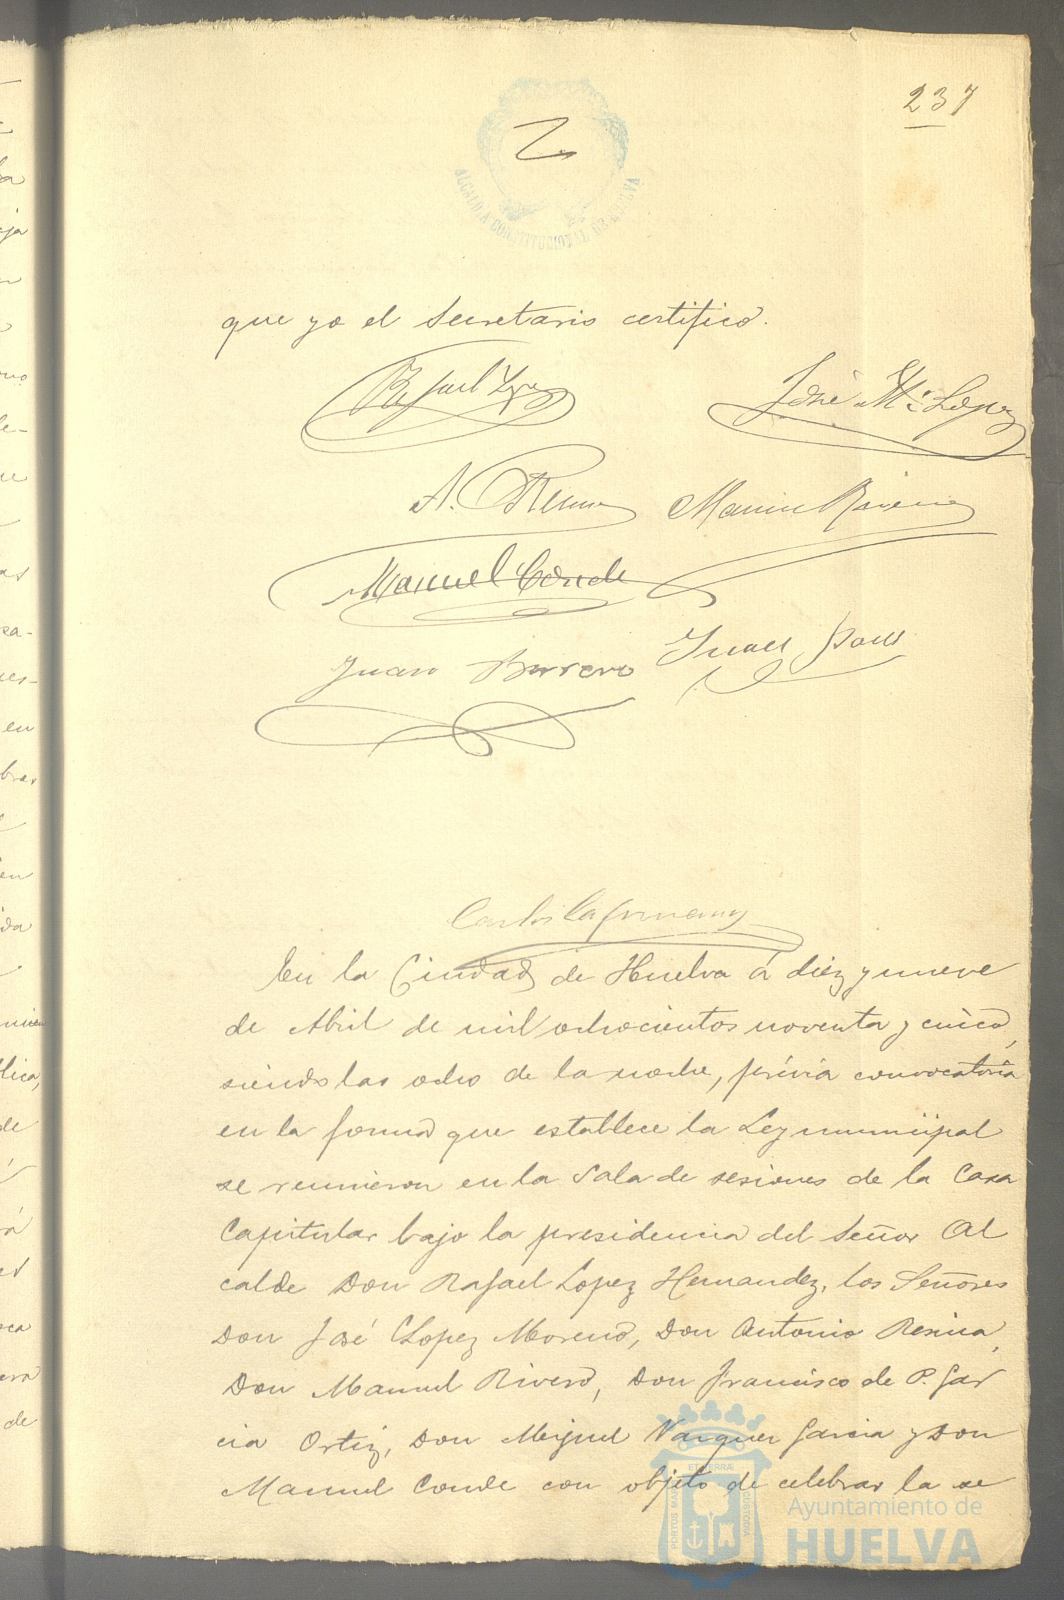 237
ALCALDIA CONSTITUCIONAL DE HUELVA
que yo el Secretario certifico.
Rafael Lopez
José Mª Lopez
A. Resina
Manuel Rivero
Manuel Conde
Juan Borrero
Juan
Carlos
En la Ciudad de Huelva á diez y nueve
de Abril de mil ochocientos noventa y cinco,
siendo las ocho de la noche, prévia convocatoria
en la forma que establece la Ley municipal
se reunieron en la Sala de sesiones de la Casa
Capitular bajo la presidencia del Señor Al
calde Don Rafael Lopez Hernandez, los Señores
Don José Lopez Moreno, Don Antonio Resina,
Don Manuel Rivero, Don Francisco de P. Gar
cia Ortiz, Don Miguel Vazquez Garcia y Don
Manuel Conde con objeto de celebrar la se
PORTUS MARIS ET TERRÆ CUSTODIA
Ayuntamiento de
HUELVA